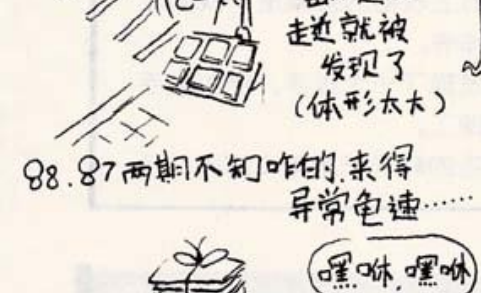 走近就被
发现了
(体形太大)
88.87两期不知咋的,来得
异常龟速……
嘿咻,嘿咻